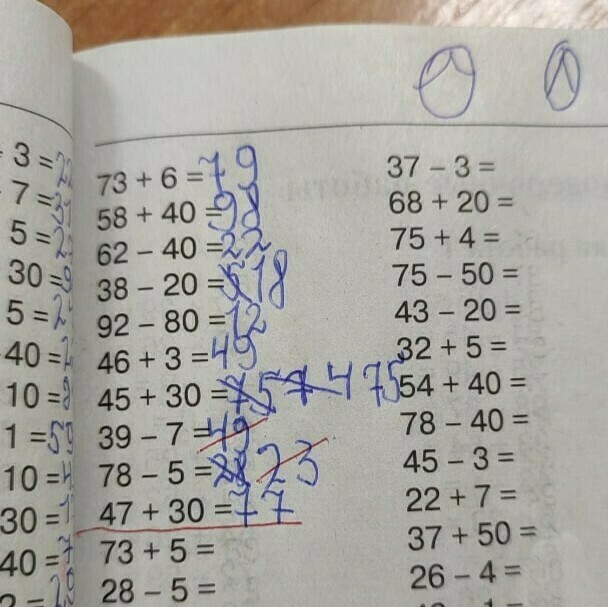 3 = 22
7 =
5 = 2
30 = 9
5 = 2
40 =
10 = 8
1 = 59
10 = 4
30 = 1
40 = 7
73 + 6 = 79
58 + 40 = 98
62 – 40 = 22
38 – 20 = 18
92 – 80 = 12
46 + 3 = 49
45 + 30 = 75
39 – 7 = 49
78 – 5 = 23
47 + 30 = 77
73 + 5 =
28 – 5 =
37 – 3 =
68 + 20 =
75 + 4 =
75 – 50 =
43 – 20 =
32 + 5 =
54 + 40 =
78 – 40 =
45 – 3 =
22 + 7 =
37 + 50 =
26 – 4 =